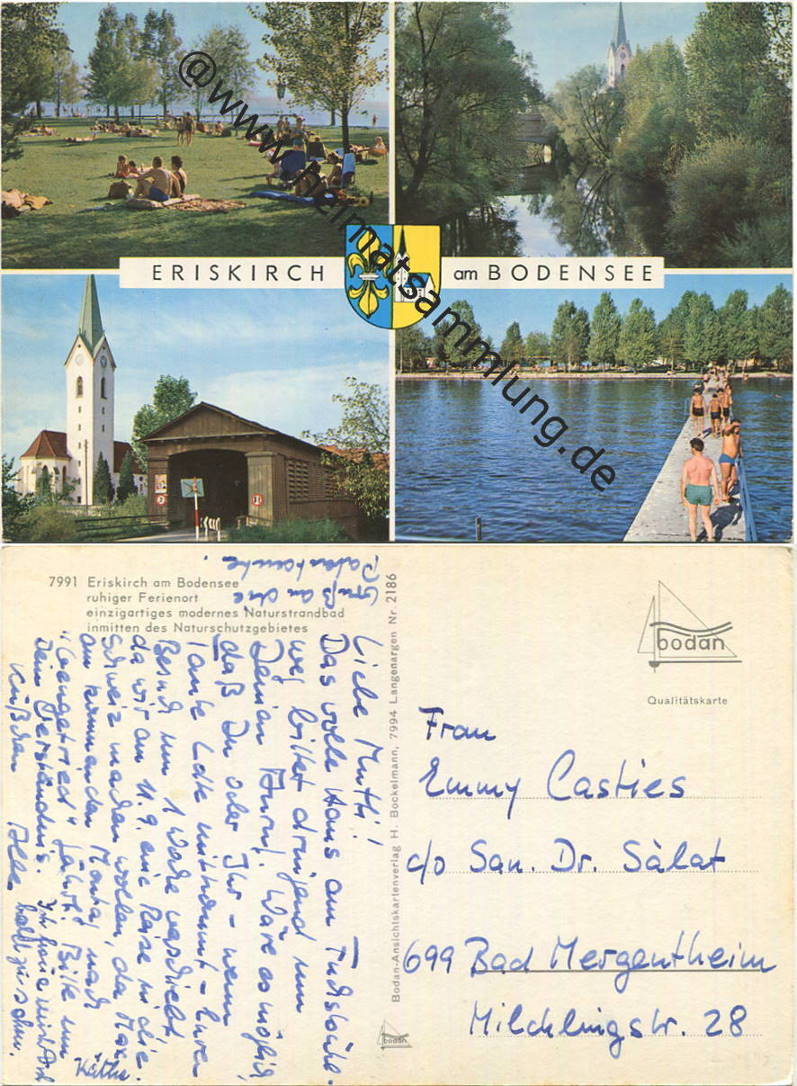 @www.heimatsammlung.de
ERISKIRCH am BODENSEE
7991 Eriskirch am Bodensee
ruhiger Ferienort
einzigartiges modernes Naturstrandbad
inmitten des Naturschutzgebietes
Bodan-Ansichtskartenverlag H. Bockelmann, 7994 Langenargen Nr. 2186
bodan
bodan
Qualitätskarte
Frau
Emmy Casties
c/o San. Dr. Sàlat
699 Bad Mergentheim
Milchlingstr. 28
Liebe Mutti!
Das volle Haus am Fuchsbühl-
weg bittet dringend um
Deinen Anruf. Wäre es möglich,
daß Du oder Ihr - wenn
Tante Lotte mitkommt - Euren
Besuch um 1 Woche verschiebt
da wir am 11.9. eine Reise in die
Schweiz machen wollen, da Max
am kommenden Montag nach
fährt. Bitte um
Dein Verständnis. Ich freue mich Dich
bald zu sehen.
Küßchen Alles
Käthe
Gruß an die